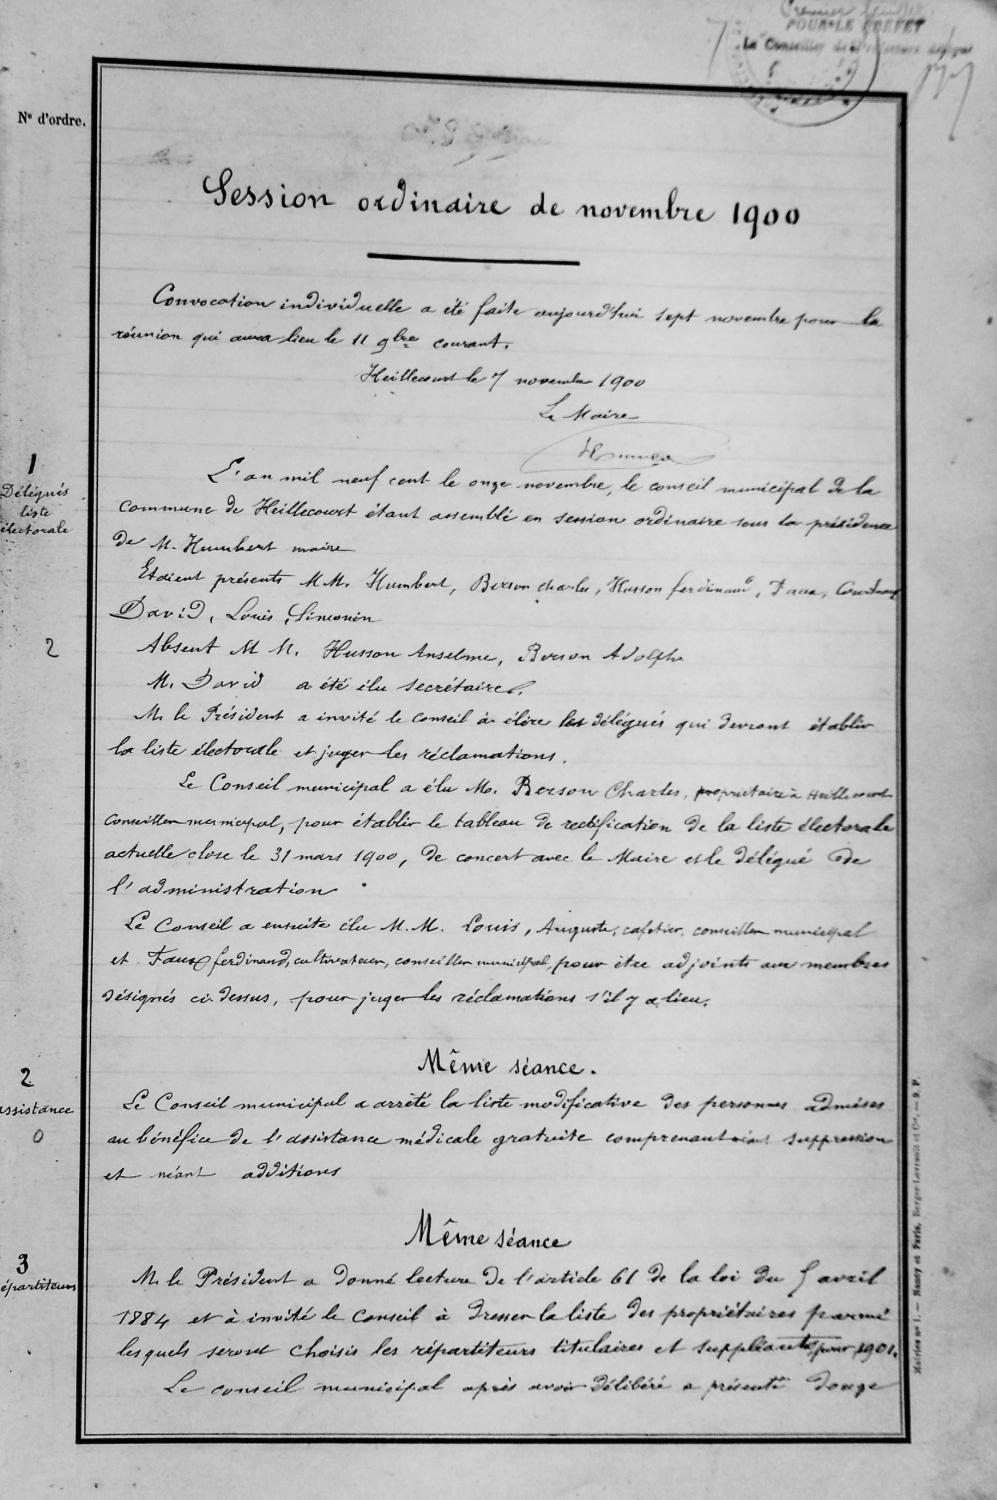 Premier feuillet
POUR LE PREFET
Le Conseiller de Préfecture délégué
N° d'ordre.
Session ordinaire de novembre 1900
Convocation individuelle a été faite aujourd'hui sept novembre pour la
réunion qui aura lieu le 11 9bre courant.
Heillecourt le 7 novembre 1900
Le Maire
Humbert
1
Délégués
liste
électorale
L'an mil neuf cent le onze novembre, le conseil municipal de la
commune de Heillecourt étant assemblé en session ordinaire sous la présidence
de M. Humbert maire
Etaient présents MM. Humbert, Berson Charles, Husson ferdinand, Faux,
David, Louis, Simonin
2
Absent M M. Husson Anselme, Berson Adolphe
M. David a été élu secrétaire.
M. le Président a invité le conseil à élire les délégués qui devront établir
la liste électorale et juger les réclamations.
Le Conseil municipal a élu M. Berson Charles, propriétaire à Heillecourt
conseiller municipal, pour établir le tableau de rectification de la liste électorale
actuelle close le 31 mars 1900, de concert avec le Maire et le délégué de
l'administration
Le Conseil a ensuite élu M.M. Louis, Auguste, cafetier, conseiller municipal
et Faux ferdinand, cultivateur, conseiller municipal, pour être adjoints aux membres
désignés ci-dessus, pour juger les réclamations s'il y a lieu.
Même séance.
2
assistance
0
Le Conseil municipal a arrêté la liste modificative des personnes admises
au bénéfice de l'assistance médicale gratuite comprenant néant suppression
et néant additions
Même séance
3
épartiteurs
M. le Président a donné lecture de l'article 61 de la loi du 5 avril
1884 et à invité le Conseil à dresser la liste des propriétaires parmi
lesquels seront choisis les répartiteurs titulaires et suppléants pour 1901.
Le conseil municipal après avoir délibéré a présenté douze
Mairies n° 1. — Nancy et Paris, Berger-Levrault et Cie. — 9. P.